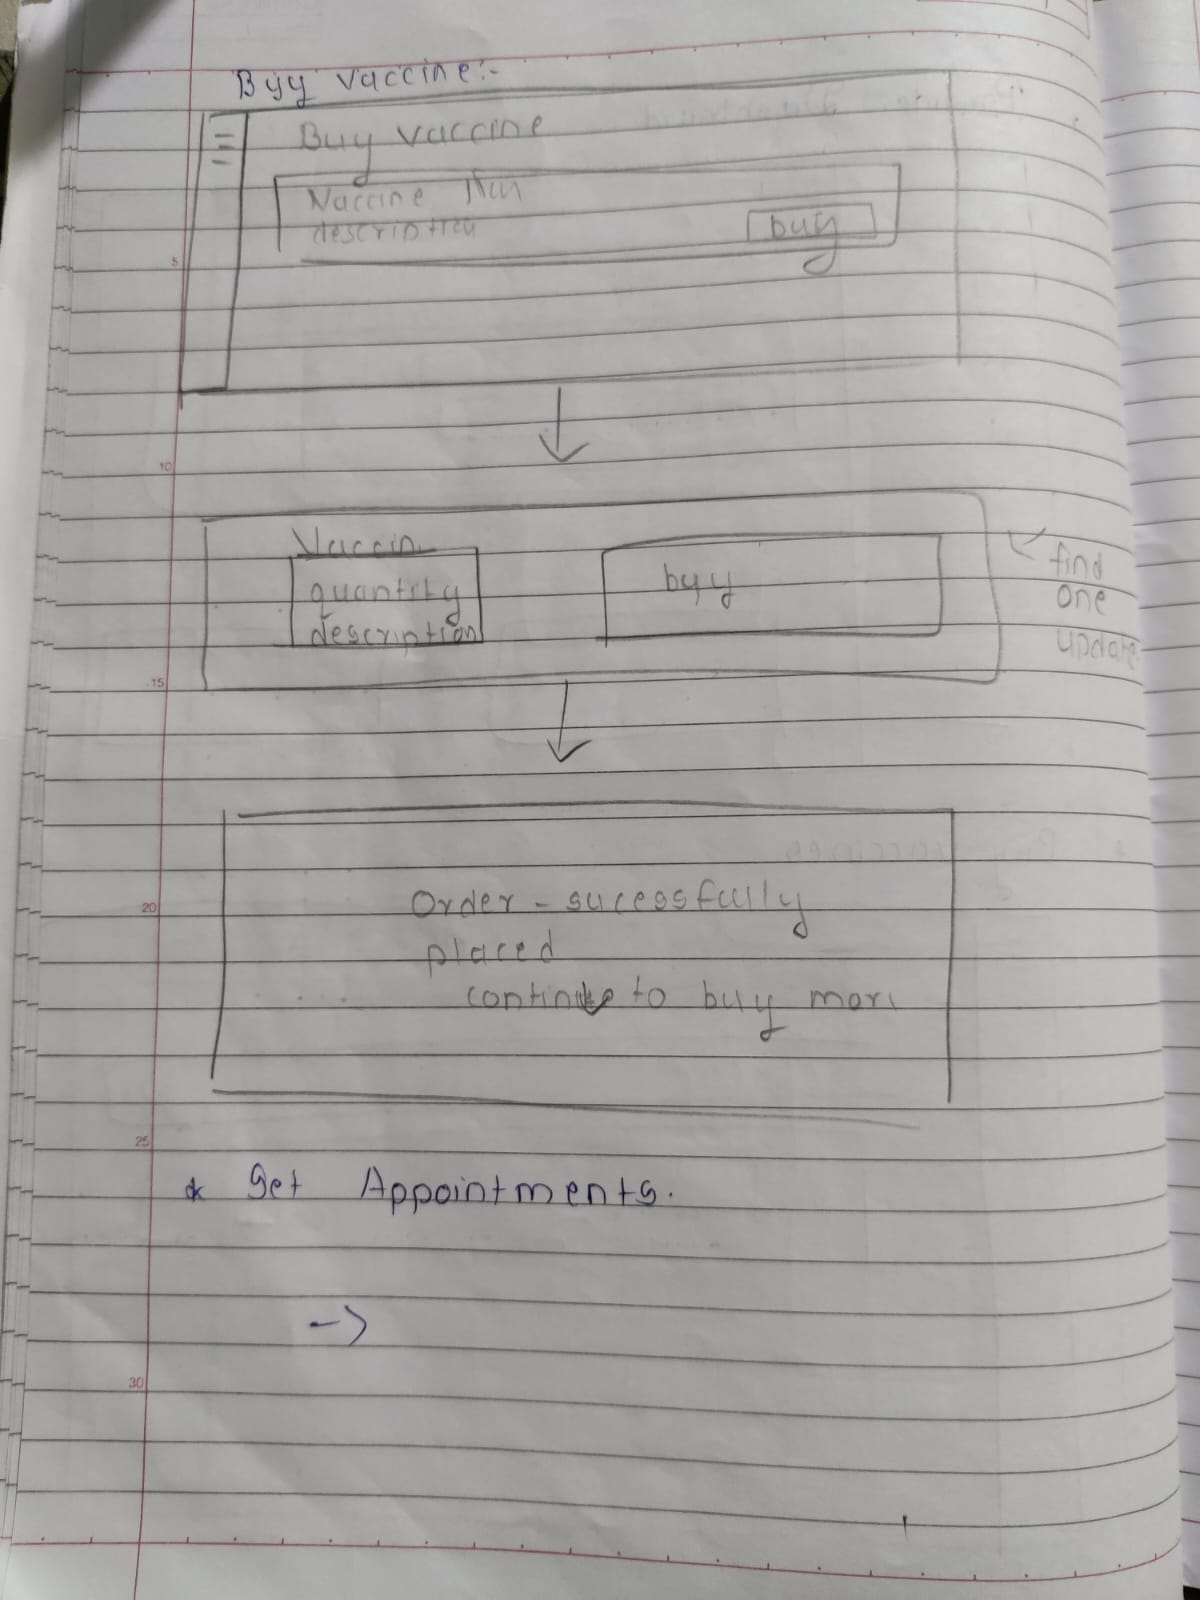 Byy vaccine:-
Buy vaccine
Vaccine
description
buy
Vaccin
quantity
description
byy
find
one
update
Order - sucessfully
placed
continue to buy more
* Get Appointments.
->
5
10
15
20
25
30